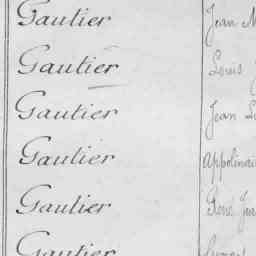 Gautier Jean M
Gautier Louis J
Gautier Jean Lu
Gautier Appolinai
Gautier René Jea
Gautier